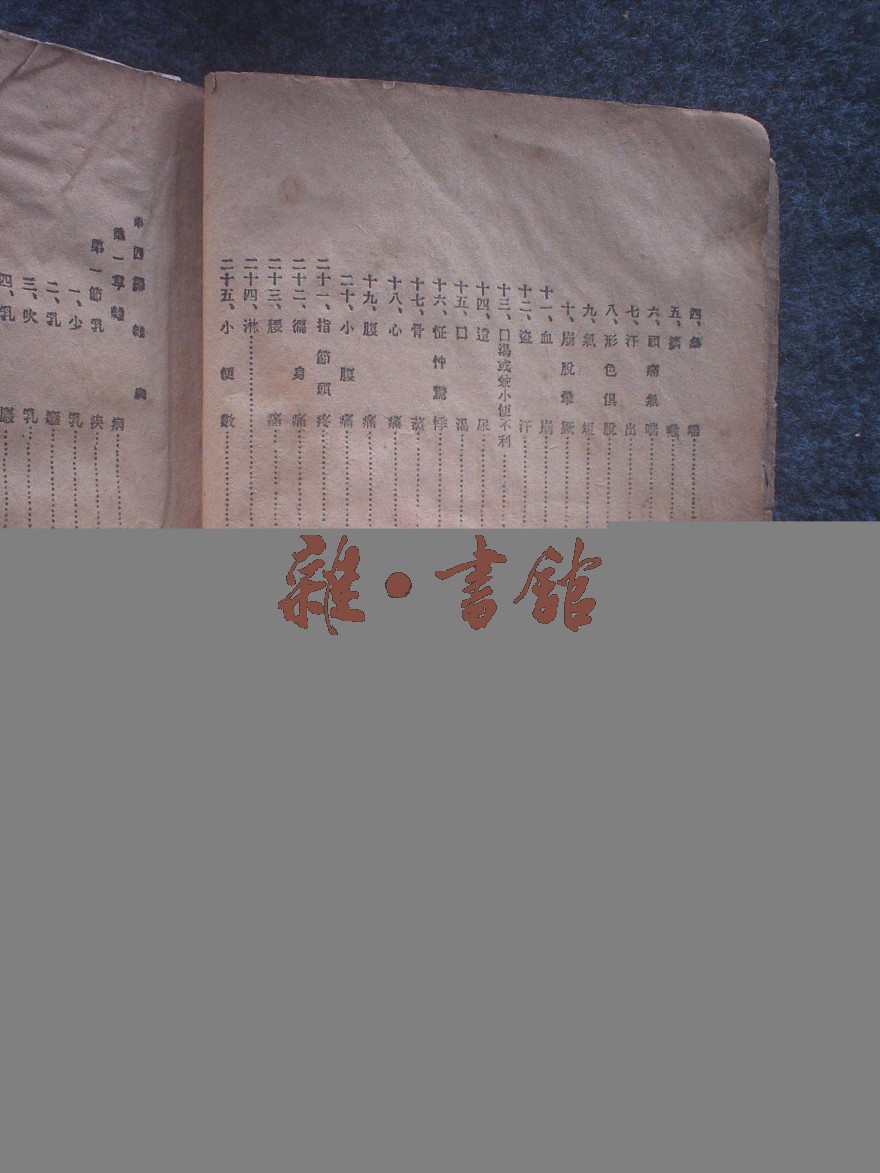 四、喘
五、
六、頭痛氣喘
七、汗出
八、形色俱脫
九、氣短
十、崩脫暈厥
十一、血崩
十二、盜汗
十三、口渴或兼小便不利
十四、遺尿
十五、口渴
十六、怔忡驚悸
十七、骨蒸
十八、心痛
十九、腹痛
二十、小腹痛
二十一、指節頭疼
二十二、徧身痛
二十三、腰痛
二十四、淋
二十五、小便數
第四 雜病
第一章 雜病
第一節 乳疾
一、少乳
二、乳癰
三、吹乳
四、乳巖
雜·書館